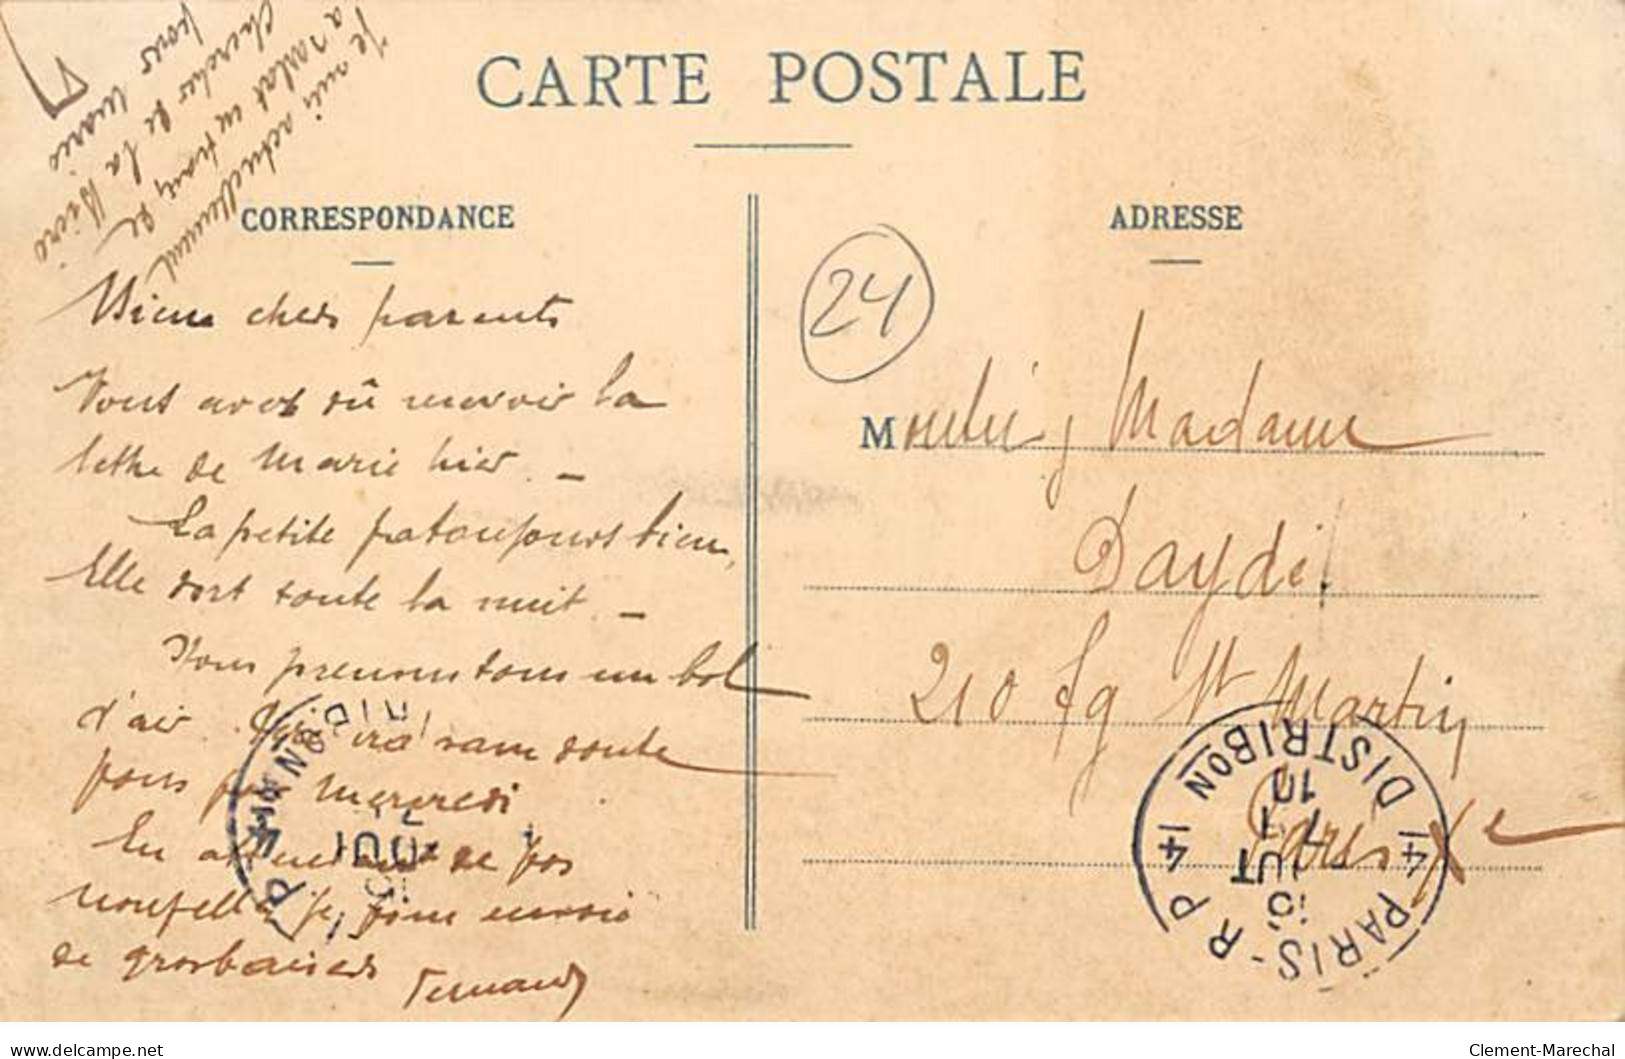 CARTE POSTALE
CORRESPONDANCE
ADRESSE
Je suis actuellement
a Sarlat en train de
chercher de la bière
pour Marie
24
Bien chers parents
Vous avez dû recevoir la
lettre de Marie hier. —
La petite va toujours bien,
Elle dort toute la nuit. —
Nous prenons tous un bol
d'air. sans doute
pour Mercredi
En attendant de vos
nouvelles je vous envoie
de gros baisers Fernand
M Madame
Daydé
210 fg St Martin
Paris Xe
14 PARIS-R P 14 DISTRIBON
Clement-Marechal
delcampe.net